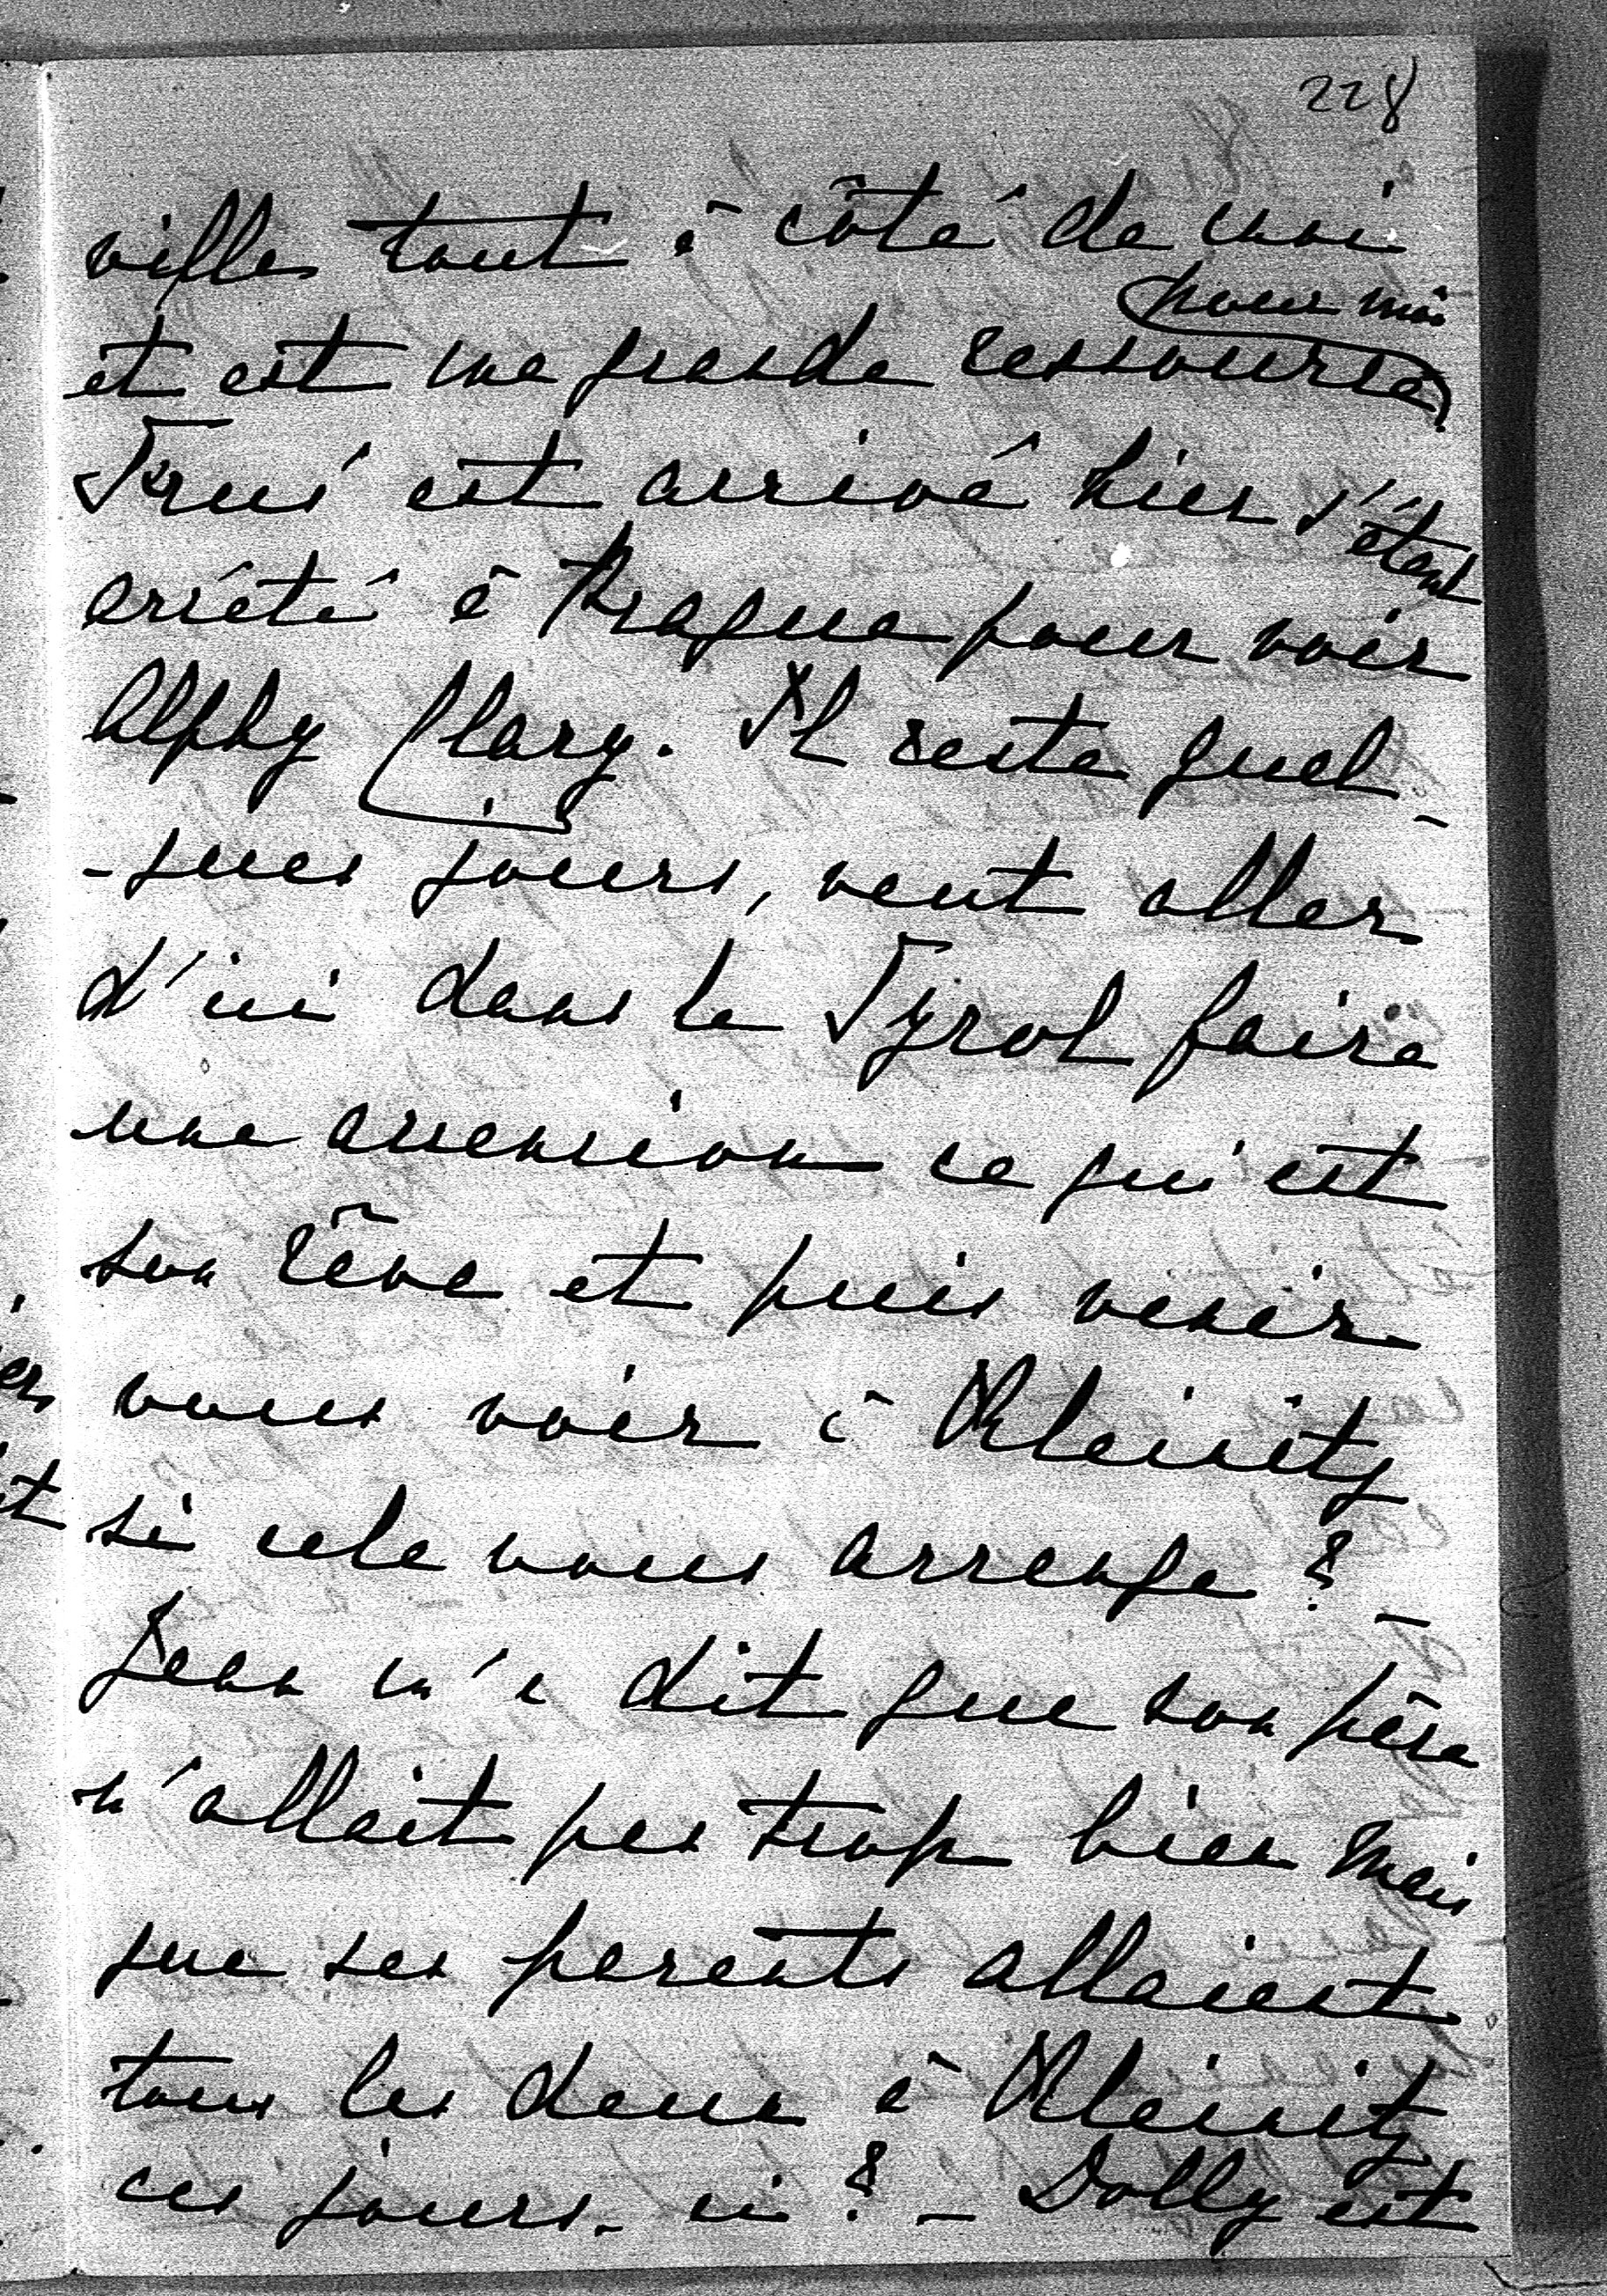 228
ville tout à côté de moi
pour moi
et est une grande ressource
est arrivé hier s'étant
arrêté à Prague pour voir
Alphy Clary. Il reste quel-
-ques jours, veut aller
d'ici dans le Tyrol faire
une ascension ce qui est
son rêve et puis venir
vous voir à Kleinitz
si cela vous arrange ?
Jean m'a dit que son père
n'allait pas trop bien mais
que ses parents allaient
tous les deux à Kleinitz
ces jours-ci ? - Dolly est